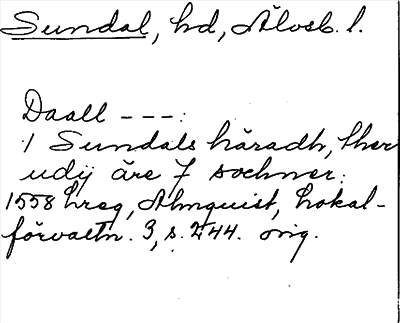 Sundal, hd, Älvsb. l.
Daall ---:
1 Sundals häradh, ther
udij äre 7 sochner.
1558 hreg, Almquist, Lokal-
förvaltn. 3, s. 244. orig.